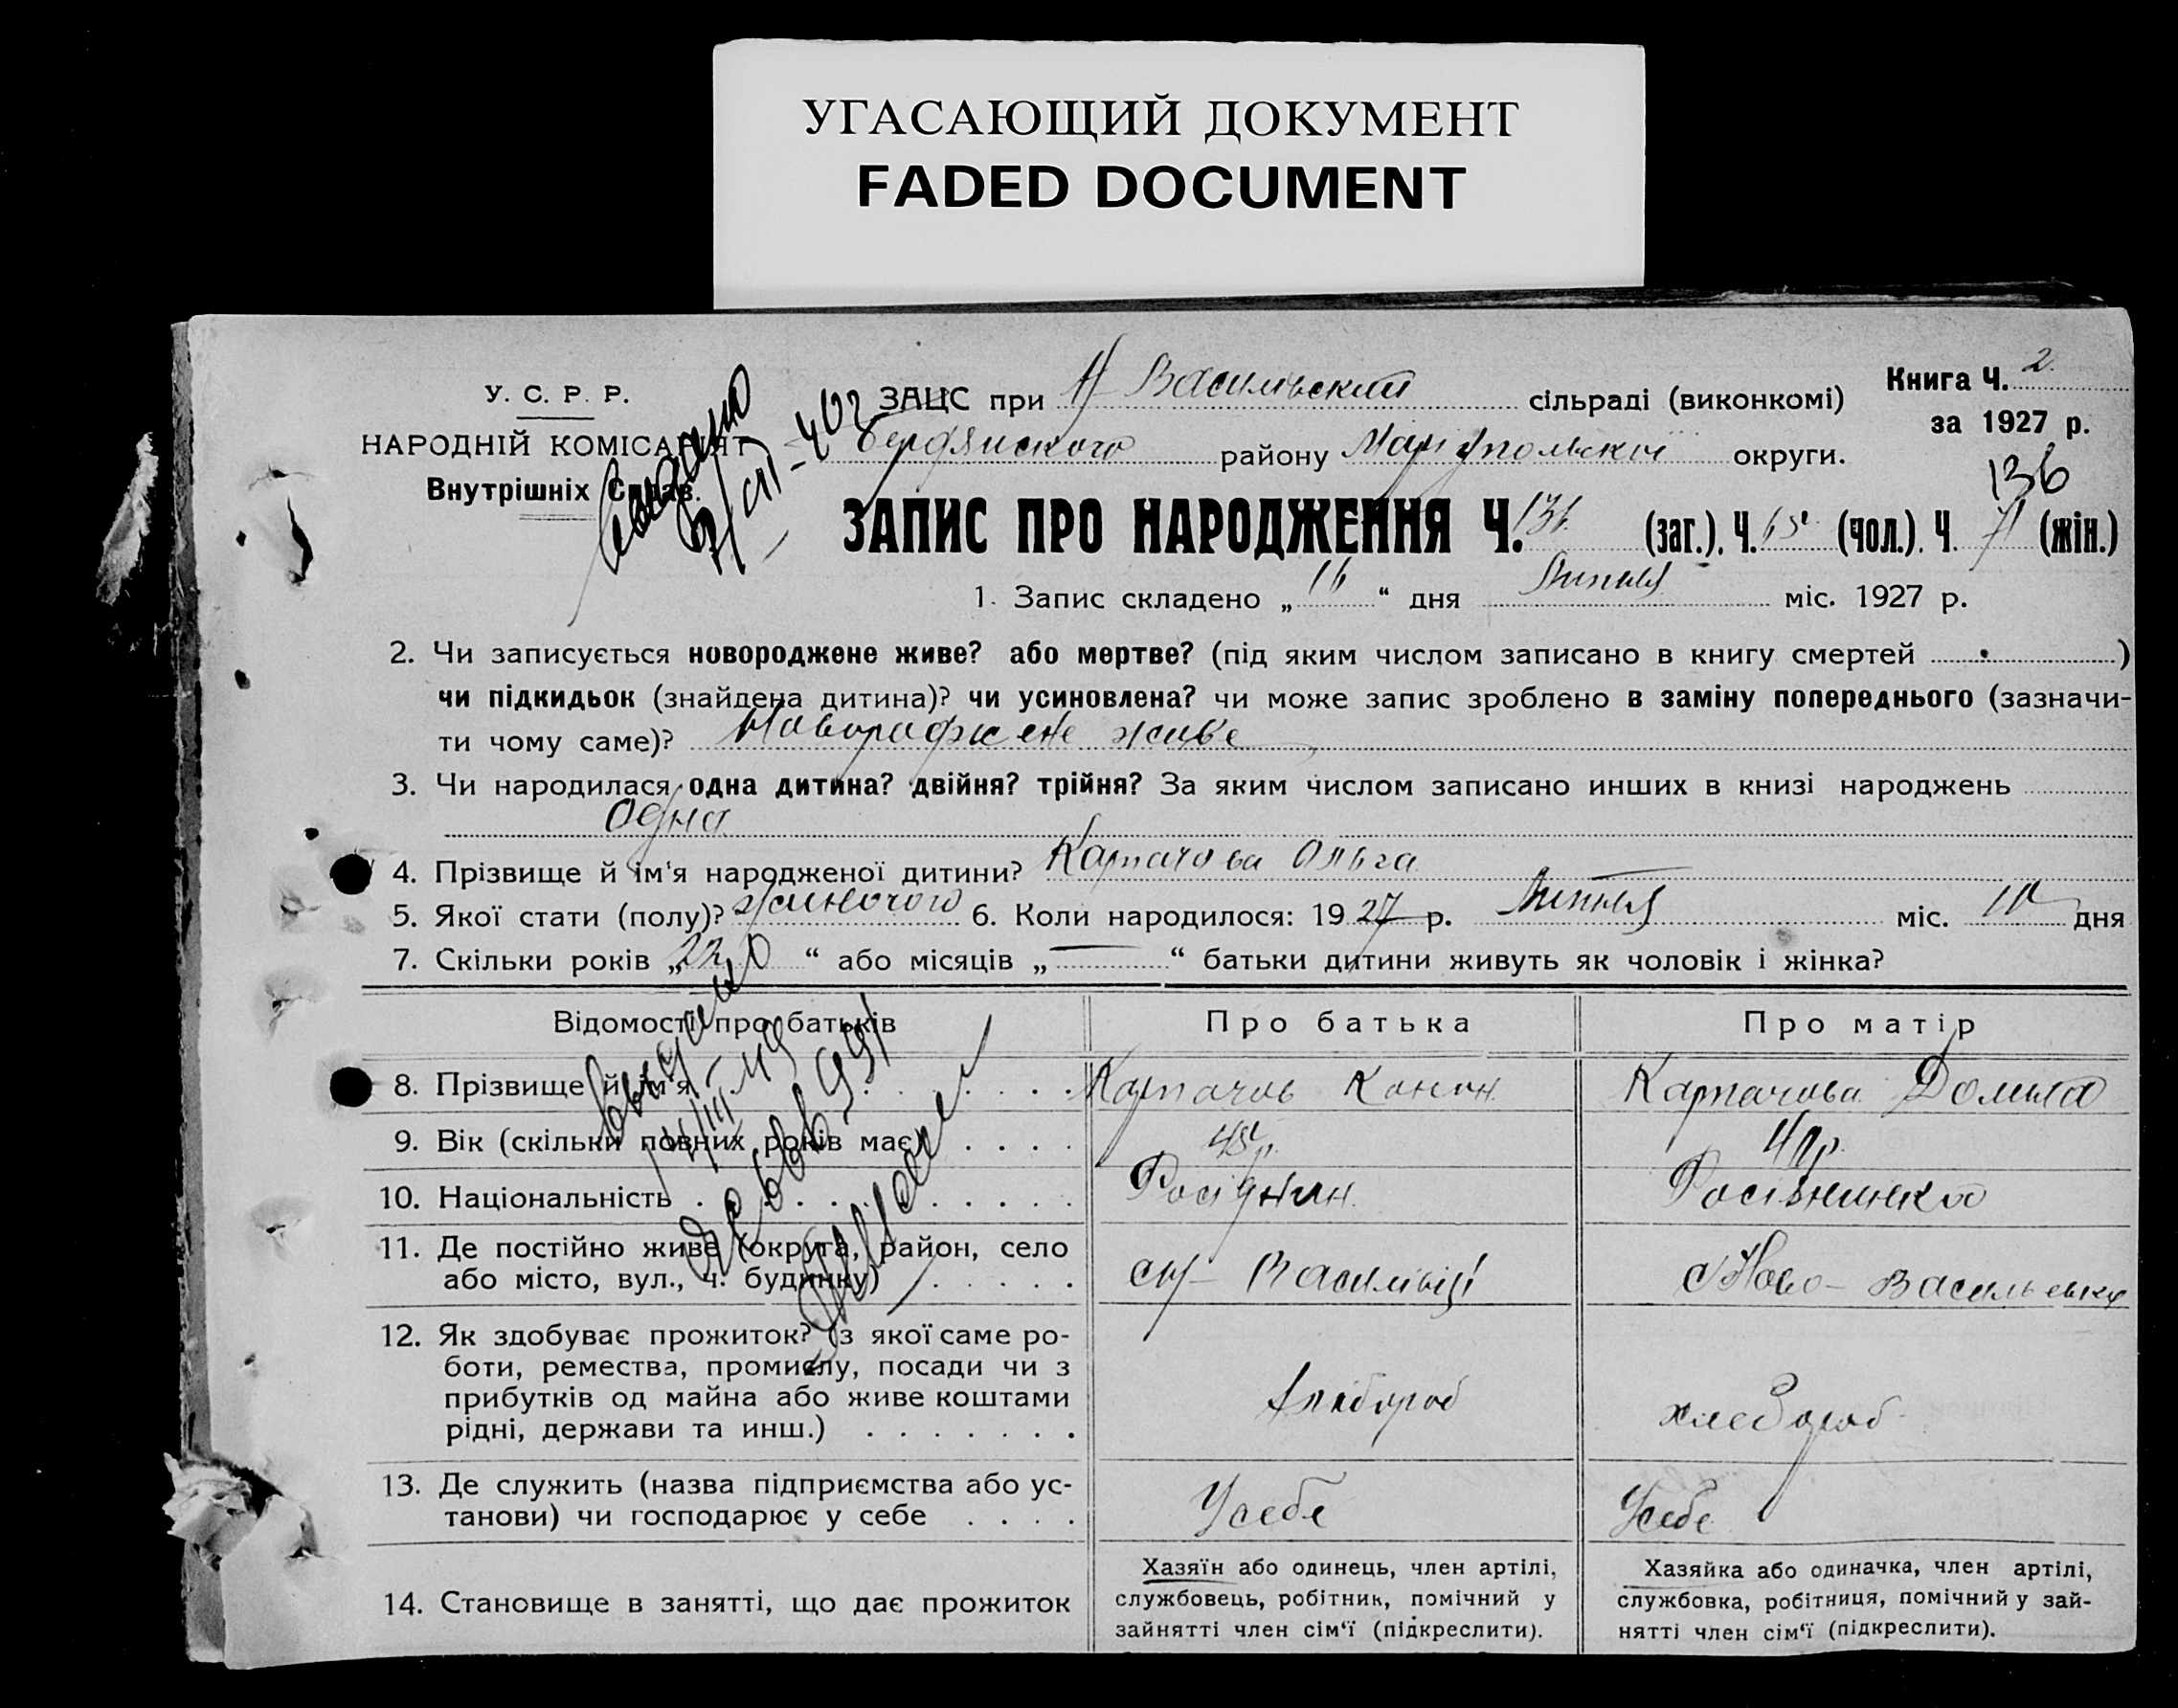 УГАСАЮЩИЙ ДОКУМЕНТ
FADED DOCUMENT
У. С. Р. Р.
НАРОДНІЙ КОМІСАРІЯТ
Внутрішніх Справ.
ЗАЦС при Н Васильвский сільраді (виконкомі)
Бердянского району Маріупольскої округи.
Книга Ч. 2
за 1927 р.
136
ЗАПИС ПРО НАРОДЖЕННЯ Ч. 136 (заг.). Ч. 65 (чол.). Ч. 71 (жін.)
1. Запис складено „ 16 “ дня Липня міс. 1927 р.
2. Чи записується новороджене живе? або мертве? (під яким числом записано в книгу смертей )
чи підкидьок (знайдена дитина)? чи усиновлена? чи може запис зроблено в заміну попереднього (зазначи-
ти чому саме)? Новороджене живе
3. Чи народилася одна дитина? двійня? трійня? За яким числом записано инших в книзі народжень
Одна
4. Прізвище й ім‘я народженої дитини? Карпачова Ольга
5. Якої стати (полу)? Жиночого 6. Коли народилося: 1927 р. Липня міс. 10 дня
7. Скільки років „ 22 “ або місяців „ — “ батьки дитини живуть як чоловік і жінка?
Відомості про батьків Про батька Про матір
8. Прізвище й ім‘я Карпачов Конон Карпачова Домна
9. Вік (скільки повних років має) 45 р. 40 р.
10. Національність Росіянин Росіянинка
11. Де постійно живе (округа, район, село
або місто, вул., ч. будинку) Василівці с Ново-Васильевку
12. Як здобуває прожиток? (з якої саме ро-
боти, ремества, промислу, посади чи з
прибутків од майна або живе коштами
рідні, держави та инш.) Хлібороб хлебороб
13. Де служить (назва підприємства або ус-
танови) чи господарює у себе Усебе Усебе
14. Становище в занятті, що дає прожиток
Хазяїн або одинець, член артілі,
службовець, робітник, помічний у
зайнятті член сім‘ї (підкреслити).
Хазяйка або одиначка, член артілі,
службовка, робітниця, помічний у зай-
нятті член сім‘ї (підкреслити).